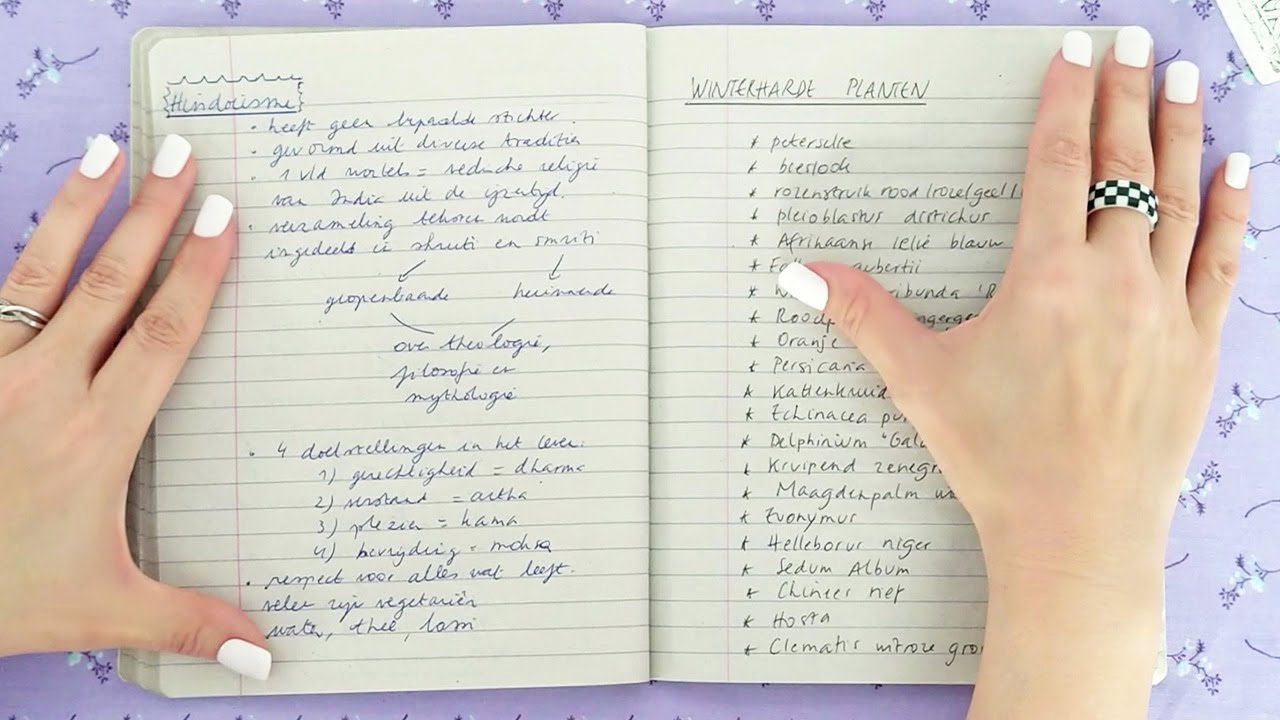 Hindoïsme
• heeft geen bepaalde stichter.
• gevormd uit diverse tradities
• 1 vld wortels = vedische religie
van India uit de ijzertijd.
• verzameling teksten wordt
ingedeeld in shruti en smriti
geopenbaarde herinnerde
over theologie,
filosofie en
mythologie
• 4 doelstellingen in het leven:
1) gerechtigheid = dharma
2) = artha
3) plezier = kama
4) bevrijding = moksa
• respect voor alles wat leeft.
velen zijn vegetariër
water, thee, lassi
WINTERHARDE PLANTEN
* peterselie
* bieslook
* rozenstruik rood/roze/geel/
* pleioblastus distichus
* Afrikaanse lelie blauw
* aubertii
* ribunda 'R
* Roodp ngerge
* Oranje
* Persicaria
* Kattenkruid
* Echinacea pur
* Delphinium 'Gala
* Kruipend zenegr
* Maagdenpalm
* Euonymus
* Helleborus niger
* Sedum Album
* Chinees riet
* Hosta
* Clematis witroze gro